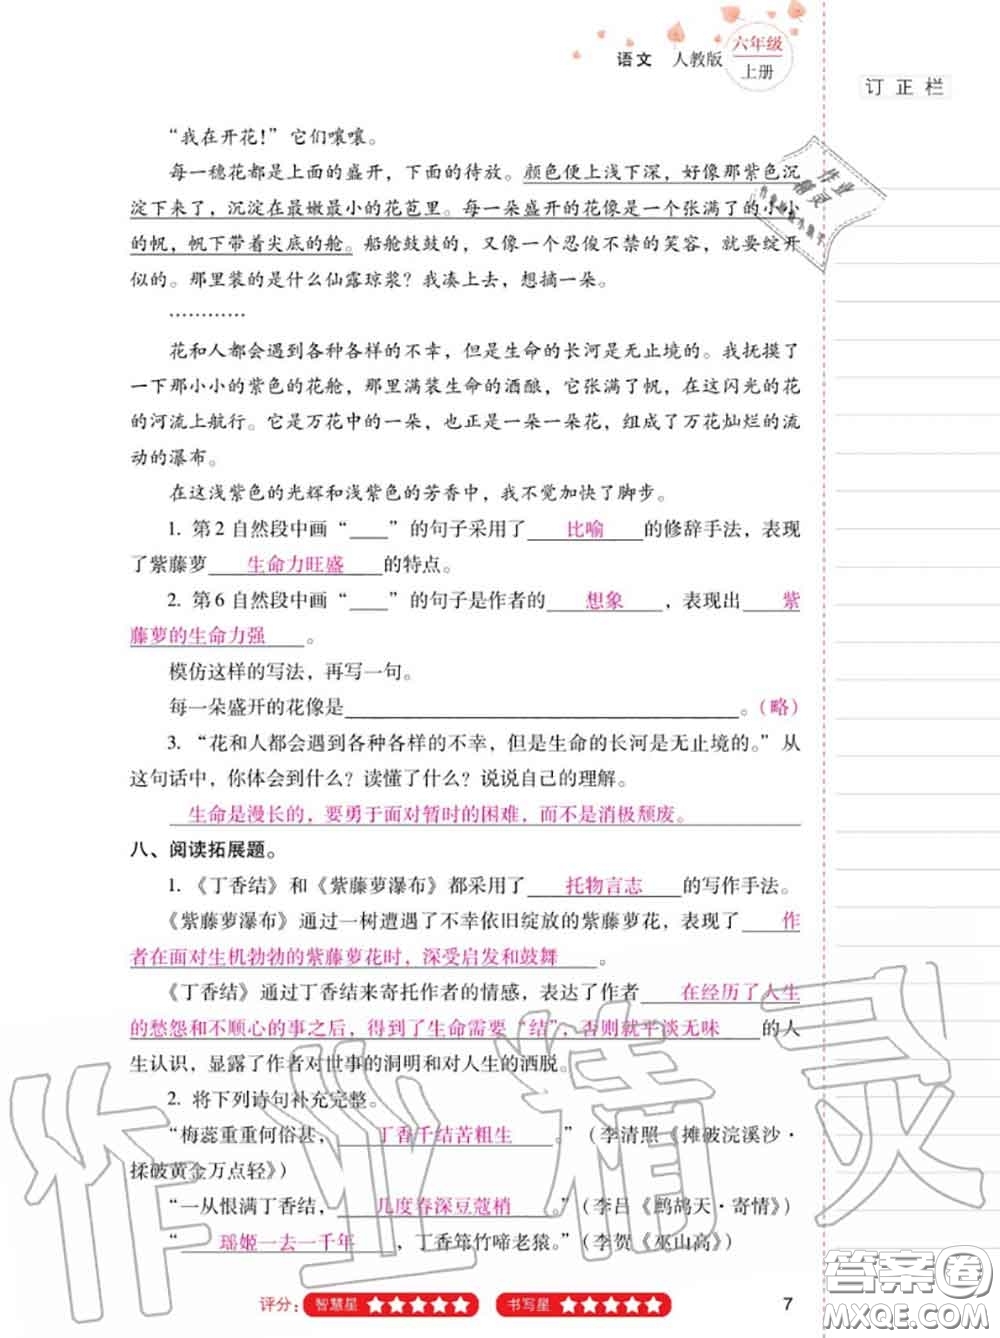 语文 人教版 六年级
上册
订正栏
“我在开花！”它们嚷嚷。
每一穗花都是上面的盛开，下面的待放。颜色便上浅下深，好像那紫色沉
淀下来了，沉淀在最嫩最小的花苞里。每一朵盛开的花像是一个张满了的小小
的帆，帆下带着尖底的舱。船舱鼓鼓的，又像一个忍俊不禁的笑容，就要绽开
似的。那里装的是什么仙露琼浆？我凑上去，想摘一朵。
…………
花和人都会遇到各种各样的不幸，但是生命的长河是无止境的。我抚摸了
一下那小小的紫色的花舱，那里满装生命的酒酿，它张满了帆，在这闪光的花
的河流上航行。它是万花中的一朵，也正是一朵一朵花，组成了万花灿烂的流
动的瀑布。
在这浅紫色的光辉和浅紫色的芳香中，我不觉加快了脚步。
1. 第2自然段中画“____”的句子采用了 比喻 的修辞手法，表现
了紫藤萝 生命力旺盛 的特点。
2. 第6自然段中画“____”的句子是作者的 想象 ，表现出 紫
藤萝的生命力强 。
模仿这样的写法，再写一句。
每一朵盛开的花像是____。（略）
3. “花和人都会遇到各种各样的不幸，但是生命的长河是无止境的。”从
这句话中，你体会到什么？读懂了什么？说说自己的理解。
生命是漫长的，要勇于面对暂时的困难，而不是消极颓废。
八、阅读拓展题。
1.《丁香结》和《紫藤萝瀑布》都采用了 托物言志 的写作手法。
《紫藤萝瀑布》通过一树遭遇了不幸依旧绽放的紫藤萝花，表现了 作
者在面对生机勃勃的紫藤萝花时，深受启发和鼓舞 。
《丁香结》通过丁香结来寄托作者的情感，表达了作者 在经历了人生
的愁怨和不顺心的事之后，得到了生命需要“结”，否则就平谈无味 的人
生认识，显露了作者对世事的洞明和对人生的洒脱。
2. 将下列诗句补充完整。
“梅蕊重重何俗甚， 丁香千结苦粗生 。”（李清照《摊破浣溪沙·
揉破黄金万点轻》）
“一从恨满丁香结， 几度春深豆蔻梢 。”（李吕《鹧鸪天·寄情》）
“ 瑶姬一去一千年 ，丁香筇竹啼老猿。”（李贺《巫山高》）
评分： 智慧星 ★★★★★ 书写星 ★★★★★ 7
作业精灵
作业精灵
答案圈
MXQE.COM